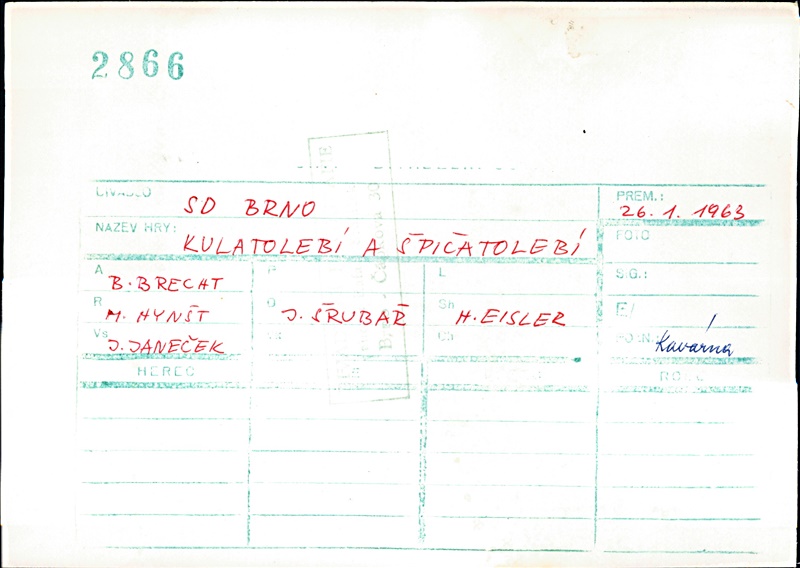 2866
DIVADLO SD BRNO PREM.: 26. 1. 1963
NÁZEV HRY: KULATOLEBÍ A ŠPIČATOLEBÍ FOTO
A B. BRECHT P L S.G.:
R M. HYNŠT J. ŠRUBAŘ Sh H. EISLER
Vs J. JANEČEK Ch Kavárna
HEREC ROLE